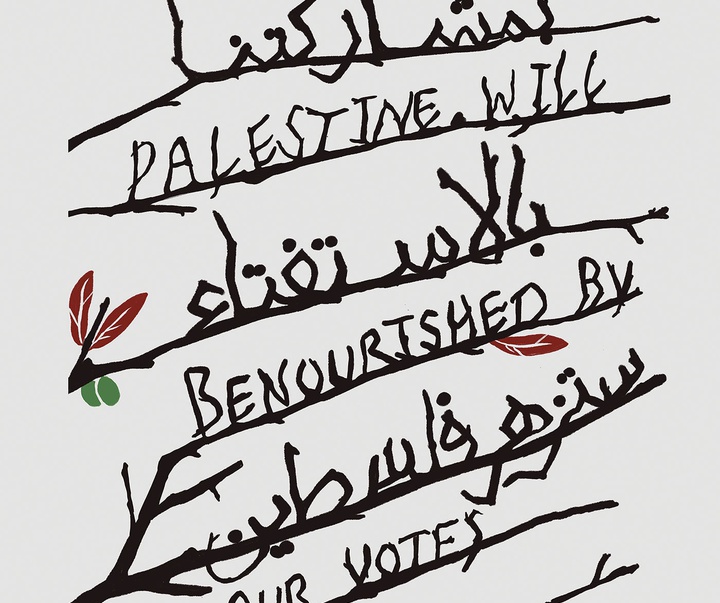 بمشاركتنا
PALESTINE WILL
بالاستفتاء
BENOURISHED BY
ستزهر فلسطين
OUR VOTES